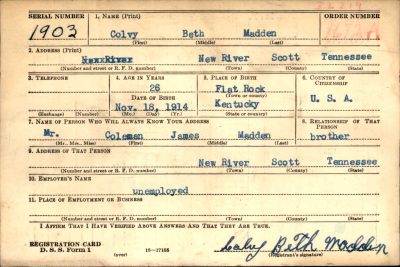 SERIAL NUMBER 1. NAME (Print) ORDER NUMBER
1903 Colvy Beth Madden
(First) (Middle) (Last)
2. ADDRESS (Print)
New River Scott Tennessee
(Number and street or R. F. D. number) (Town) (County) (State)
3. TELEPHONE 4. AGE IN YEARS 5. PLACE OF BIRTH 6. COUNTRY OF CITIZENSHIP
26 Flat Rock
DATE OF BIRTH (Town or county)
Nov. 18, 1914 Kentucky U. S. A.
(Exchange) (Number) (Mo.) (Day) (Yr.) (State or country)
7. NAME OF PERSON WHO WILL ALWAYS KNOW YOUR ADDRESS 8. RELATIONSHIP OF THAT PERSON
Mr. Coleman James Madden brother
(Mr., Mrs., Miss) (First) (Middle) (Last)
9. ADDRESS OF THAT PERSON
New River Scott Tennessee
(Number and street or R. F. D. number) (Town) (County) (State)
10. EMPLOYER'S NAME
unemployed
11. PLACE OF EMPLOYMENT OR BUSINESS
(Number and street or R. F. D. number) (Town) (County) (State)
I AFFIRM THAT I HAVE VERIFIED ABOVE ANSWERS AND THAT THEY ARE TRUE.
REGISTRATION CARD
D. S. S. Form 1 (over) 16—17105 Colvy Beth Madden
(Registrant's signature)